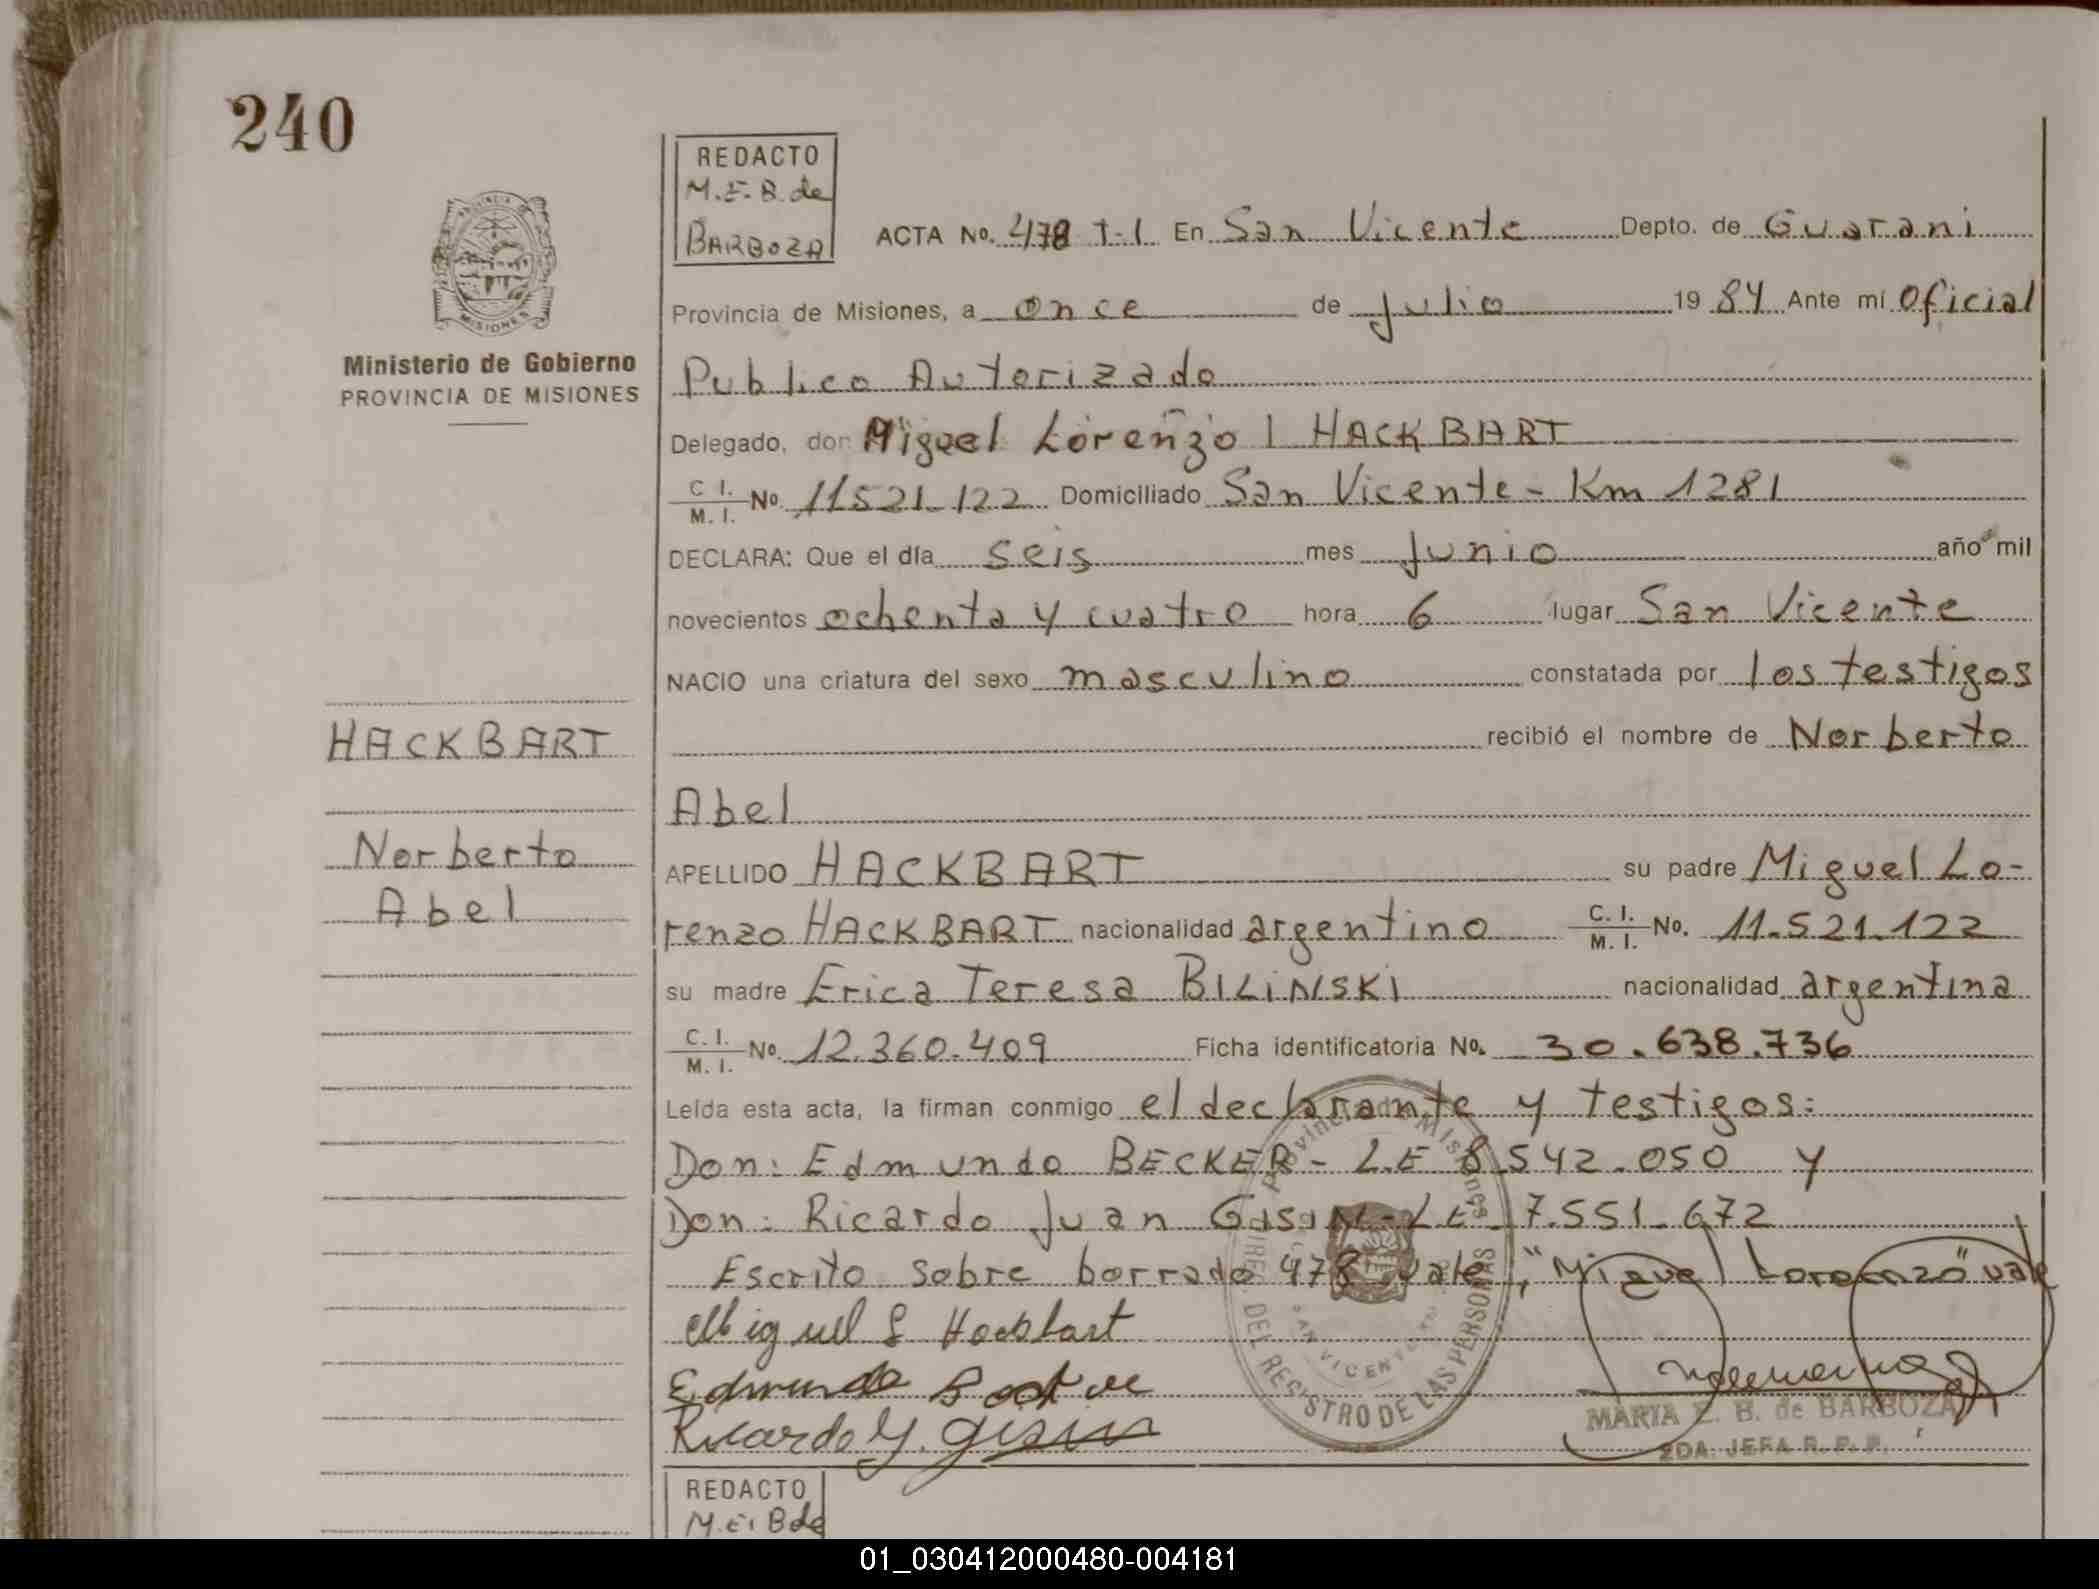 240
REDACTO
M.E.B. de
BARBOZA
PROVINCIA DE
MISIONES
Ministerio de Gobierno
PROVINCIA DE MISIONES
ACTA No. 478 T-I En San Vicente Depto. de Guarani
Provincia de Misiones, a once de Julio 1984 Ante mí Oficial
Publico Autorizado
Delegado, don Miguel Lorenzo | HACKBART
C. I. / M. I. No. 11521.122 Domiciliado San Vicente - Km 1281
DECLARA: Que el día seis mes Junio año mil
novecientos ochenta y cuatro hora 6 lugar San Vicente
NACIO una criatura del sexo masculino constatada por los testigos
recibió el nombre de Norberto
Abel
HACKBART
Norberto
Abel
APELLIDO HACKBART su padre Miguel Lo-
renzo HACKBART nacionalidad argentino C. I. / M. I. No. 11.521.122
su madre Erica Teresa BILINSKI nacionalidad argentina
C. I. / M. I. No. 12.360.409 Ficha identificatoria No. 30.638.736
Leída esta acta, la firman conmigo el declarante y testigos:
Don: Edmundo BECKER - L.E 8.542.050 y
Don: Ricardo Juan - LE 7.551.672
Escrito sobre borrado 478 vale, "Miguel Lorenzo" vale
Miguel L Hackbart
Edmundo
Ricardo J.
Provincia de Misiones
DEL REGISTRO DE LAS PERSONAS
SAN VICENTE
MARIA E. B. de BARBOZA
2DA. JEFA R. P. P.
REDACTO
M.E. B de
01_030412000480-004181